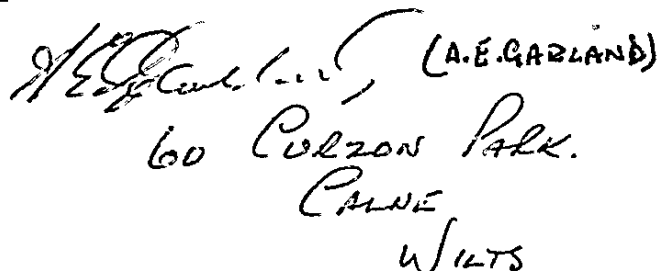 A E Garland, (A.E.GARLAND)
60 CURZON PARK.
CALNE
WILTS